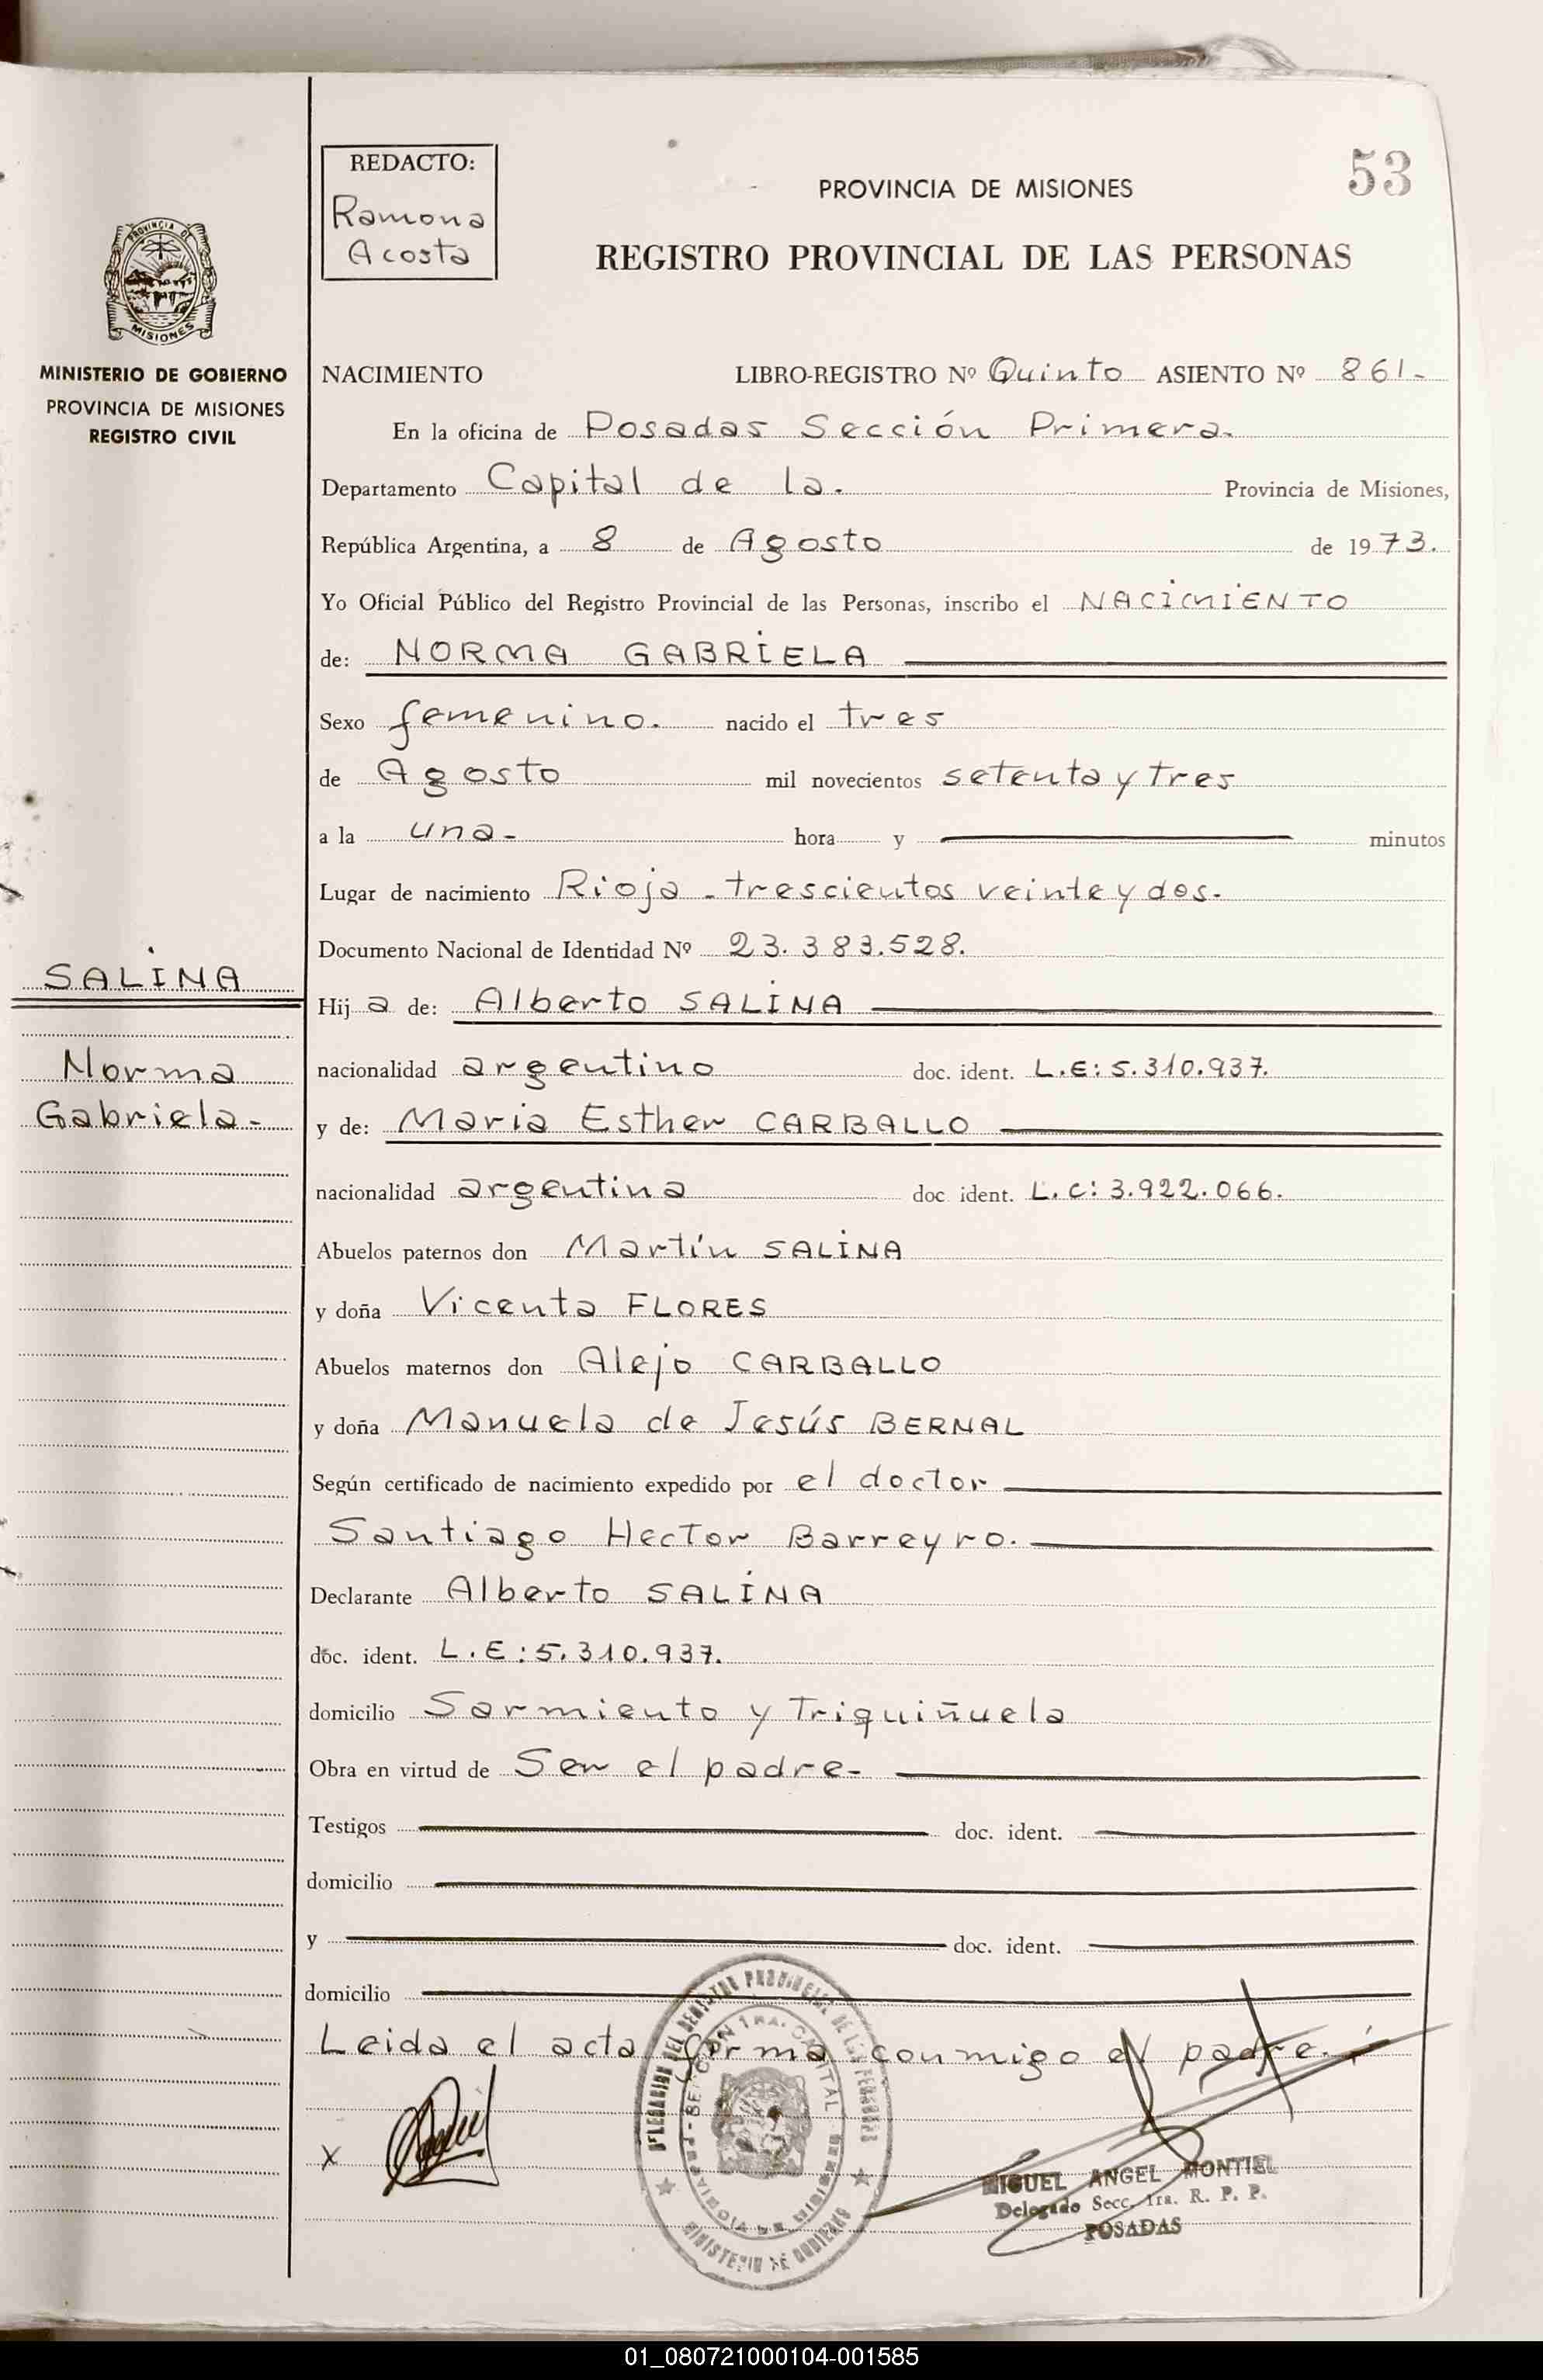 REDACTO:
Ramona
Acosta
53
PROVINCIA DE MISIONES
REGISTRO PROVINCIAL DE LAS PERSONAS
PROVINCIA DE
MISIONES
MINISTERIO DE GOBIERNO
PROVINCIA DE MISIONES
REGISTRO CIVIL
NACIMIENTO LIBRO-REGISTRO Nº Quinto ASIENTO Nº 861-
En la oficina de Posadas Sección Primera.
Departamento Capital de la. Provincia de Misiones,
República Argentina, a 8 de Agosto de 1973.
Yo Oficial Público del Registro Provincial de las Personas, inscribo el NACIMIENTO
de: NORMA GABRIELA
Sexo femenino. nacido el tres
de Agosto mil novecientos setenta y tres
a la una- hora y minutos
Lugar de nacimiento Rioja - trescientos veinte y dos.
Documento Nacional de Identidad Nº 23.383.528.
SALINA
Norma
Gabriela-
Hija de: Alberto SALINA
nacionalidad argentino doc. ident. L.E: 5.310.937.
y de: Maria Esther CARBALLO
nacionalidad argentina doc ident. L.C: 3.922.066.
Abuelos paternos don Martín SALINA
y doña Vicenta FLORES
Abuelos maternos don Alejo CARBALLO
y doña Manuela de Jesús BERNAL
Según certificado de nacimiento expedido por el doctor
Santiago Hector Barreyro.
Declarante Alberto SALINA
doc. ident. L.E: 5.310.937.
domicilio Sarmiento y Triquiñuela
Obra en virtud de Ser el padre-
Testigos doc. ident.
domicilio
y doc. ident.
domicilio
Leida el acta firma conmigo el padre.
X
MIGUEL ANGEL MONTIEL
Delegado Secc. 1ra. R. P. P.
POSADAS
MINISTERIO DE GOBIERNO
01_080721000104-001585